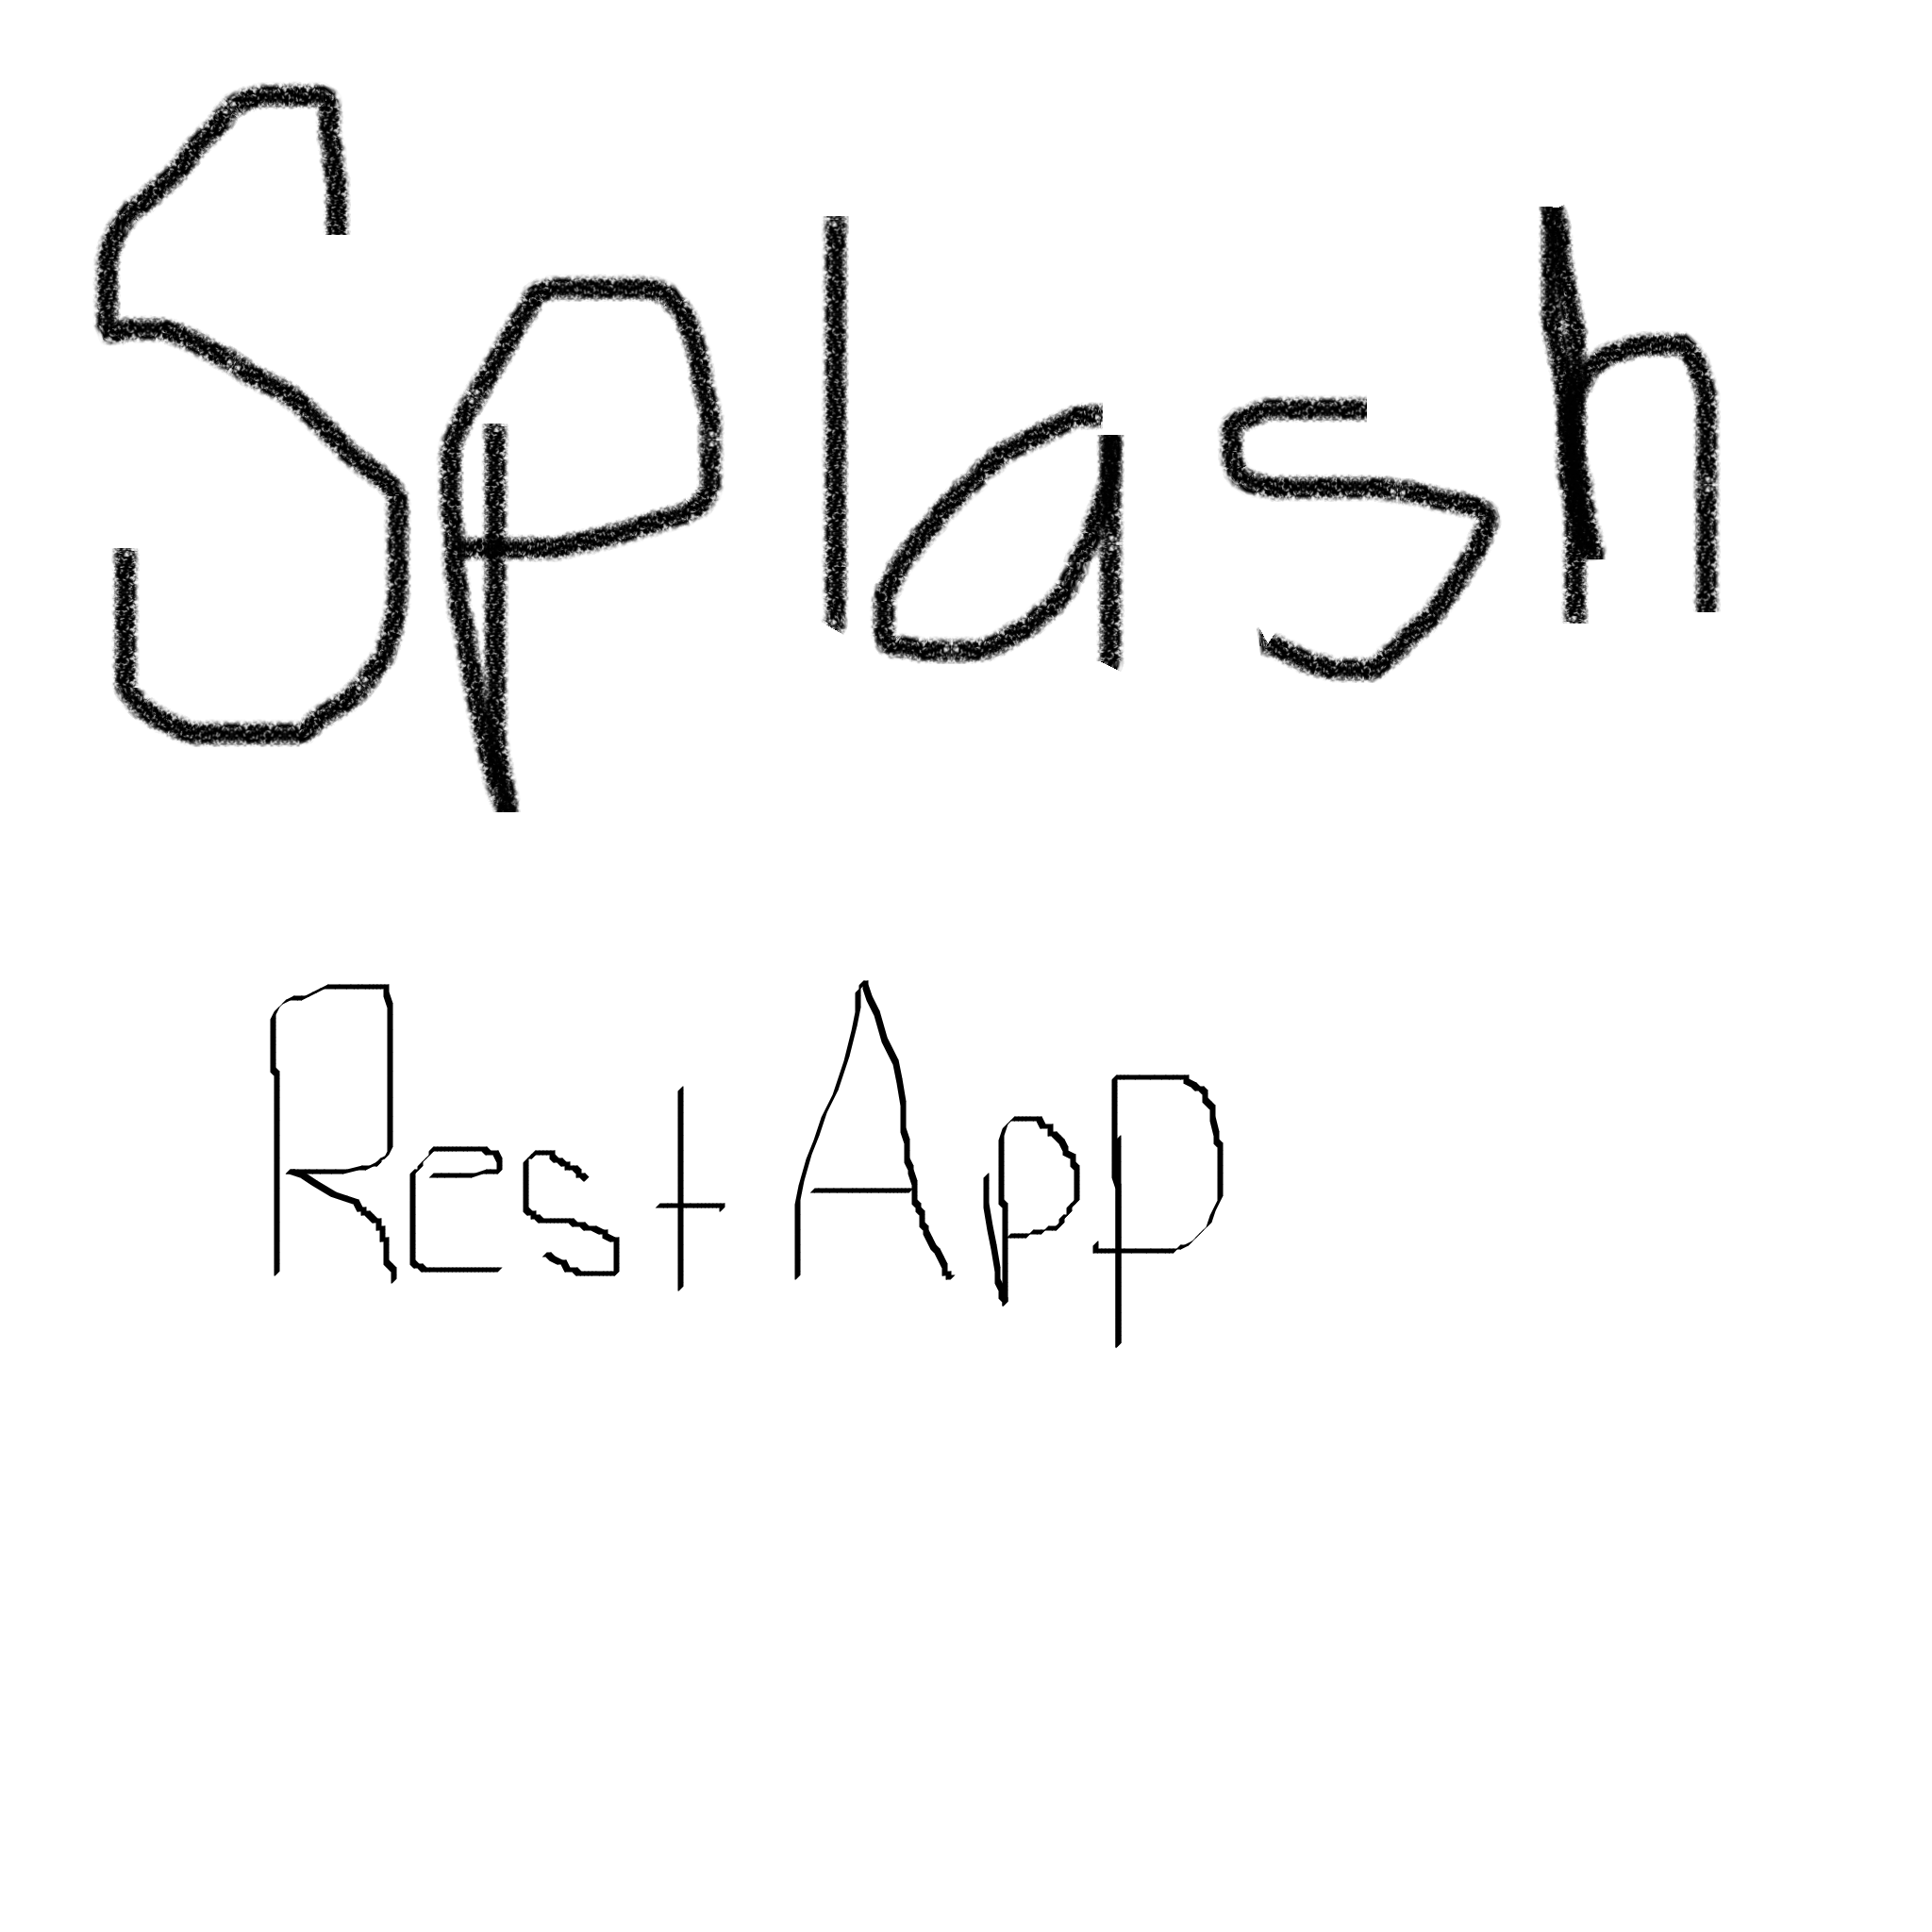 Splash
Rest App